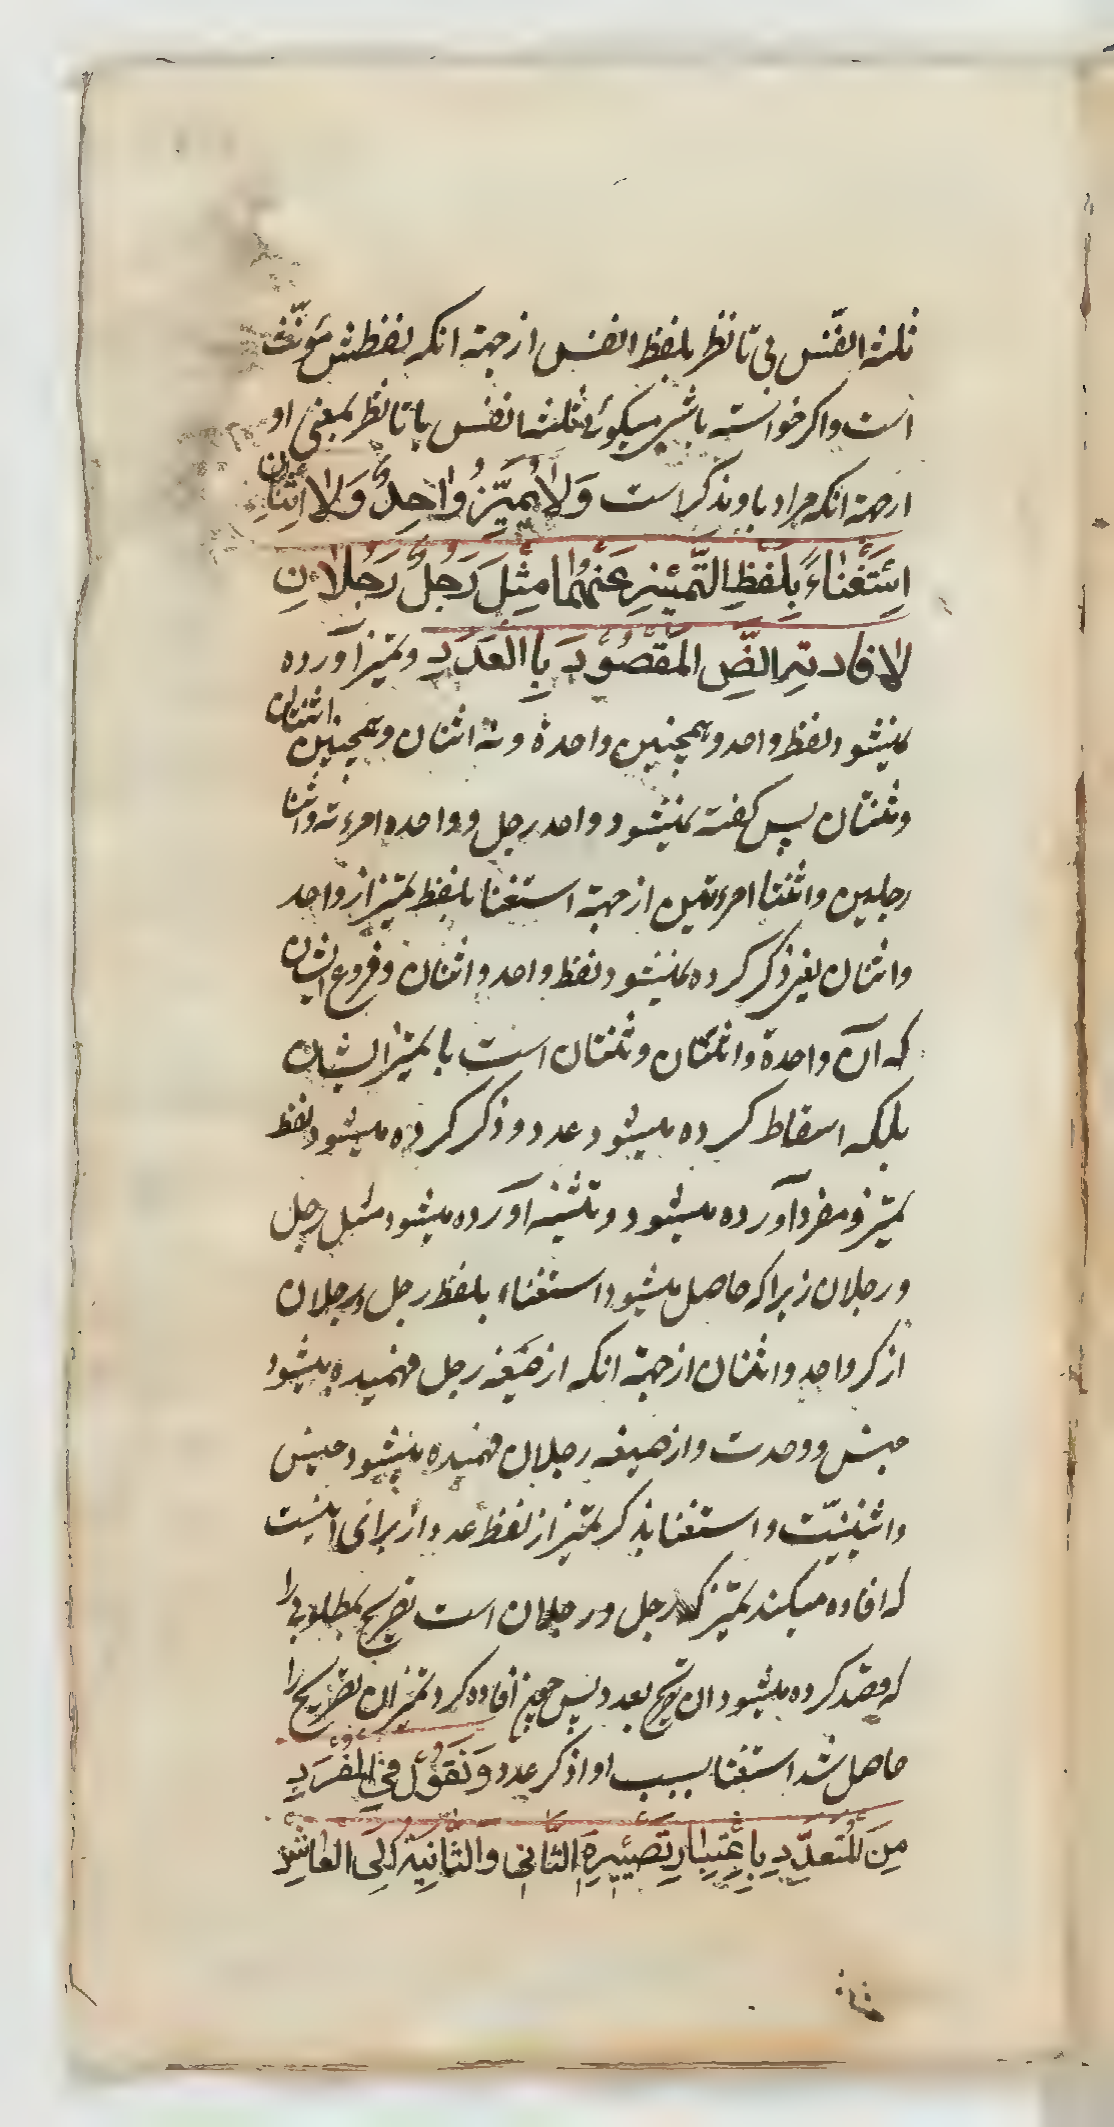 ثلثه انفس بی تا نظر بلفظ انفس از جهته انکه لفظش مؤنّث
است واکر خواسته باشی میکوئی ثلثه انفس با تا نظر بمعنی او
ازجهته انکه مراد باو مذکر است وَلا یُمیَّزُ واحِدٌ وَلا اِثنانِ
اِستَغناءً بِلَفظِ التَّمییزِ عَنهُما مِثلَ رَجُلٌ رَجُلانِ
لافادتِهِ النَّصِ المَقصُودَ بِاالعَدَدِ وتمیز آورده
نمیشود لفظ واحد وهمچنین واحدة ونه اثنان وهمچنین اثنتان
وثنتان پس کفته نمیشود واحد رجل و واحده امرءته واثنا
رجلین واثنتا امرءتین از جهته استغنا بلفظ تمیز از واحد
واثنان یعنی ذکر کرده نمیشود لفظ واحد واثنان وفروع ایشان
که آن واحدة واثنتان وثنتان است با تمیز ایشان
بلکه اسقاط کرده میشود عدد و ذکر کرده میشود لفظ
تمیز ومفرد آورده میشود وتثنیه آورده میشود مثل رجل
ورجلان زیراکه حاصل میشود استغناء بلفظ رجل ورجلان
از کر واحد واثنان از جهته انکه از صیغه رجل فهمیده میشود
جنس و وحدت واز صیغه رجلان فهمیده میشود جنس
واثنینیّت واستغنا بذکر تمیز از لفظ عدد از برای اینست
که افاده میکند تمیز که رجل ورجلان است تصریح مطلوبی را
که قصد کرده میشود ان تصریح بعدد پس چون افاده کرد تمیز ان تصریح را
حاصل شد استغنا بسبب او از ذکر عدد وَتَقُولُ فِی المُفرَدِ
مِنَ المُتَعَدِّدِ بِاِعتِبارِ تَصییرِهِ الثّانی والثانِیَه اِلَی العاشِرِ